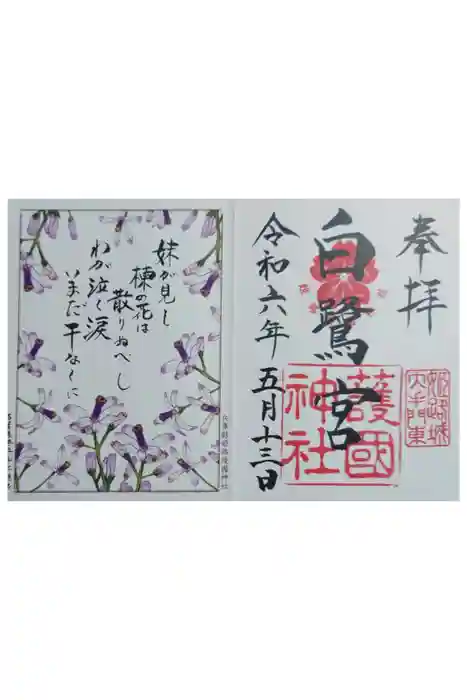 奉拝
白鷺宮
護國
神社
姫路城
大手門東
令和六年 五月十三日
妹が見し
楝の花は
散りぬべし
わが泣く涙
いまだ干なくに
兵庫縣姫路護國神社